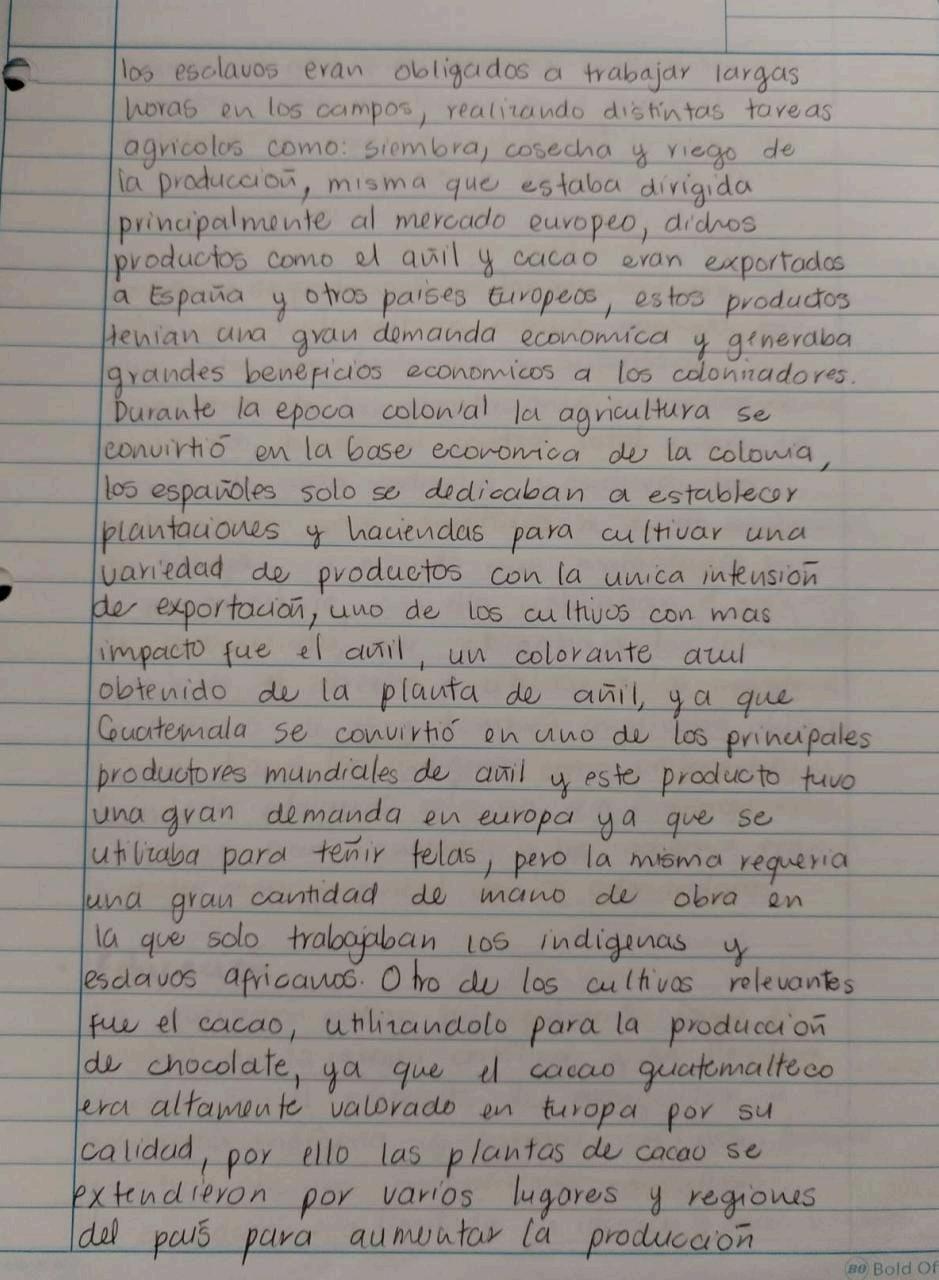 los esclavos eran obligados a trabajar largas
horas en los campos, realizando distintas tareas
agricolas como: siembra, cosecha y riego de
la producción, misma que estaba dirigida
principalmente al mercado europeo, dichos
productos como el añil y cacao eran exportados
a España y otros paises Europeos, estos productos
tenian una gran demanda economica y generaba
grandes beneficios economicos a los colonizadores.
Durante la epoca colonial la agricultura se
convirtió en la base economica de la colonia,
los españoles solo se dedicaban a establecer
plantaciones y haciendas para cultivar una
variedad de productos con la unica intensión
de exportación, uno de los cultivos con mas
impacto fue el añil, un colorante azul
obtenido de la planta de añil, ya que
Guatemala se convirtió en uno de los principales
productores mundiales de añil y este producto tuvo
una gran demanda en europa ya que se
utilizaba para teñir telas, pero la misma requeria
una gran cantidad de mano de obra en
la que solo trabajaban los indigenas y
esclavos africanos. Otro de los cultivos relevantes
fue el cacao, utilizandolo para la producción
de chocolate, ya que el cacao guatemalteco
era altamente valorado en Europa por su
calidad, por ello las plantas de cacao se
extendieron por varios lugares y regiones
del país para aumentar la producción
Bold Of